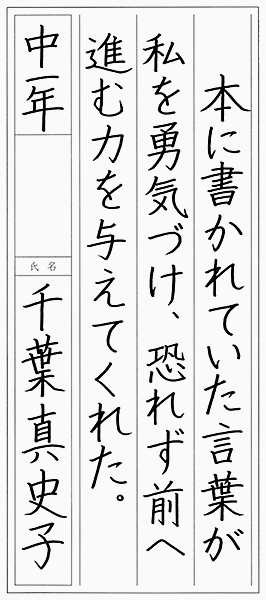 本に書かれていた言葉が
私を勇気づけ、恐れず前へ
進む力を与えてくれた。
中一年
氏名
千葉真史子